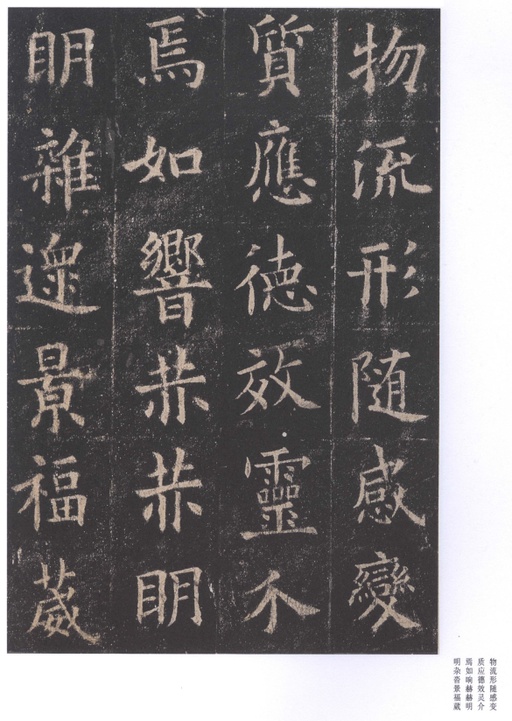 物流形随感變
質應德效靈介
焉如響赫赫眀
眀雜遝景福葳
物流形随感变
质应德效灵介
焉如响赫赫明
明杂沓景福葳